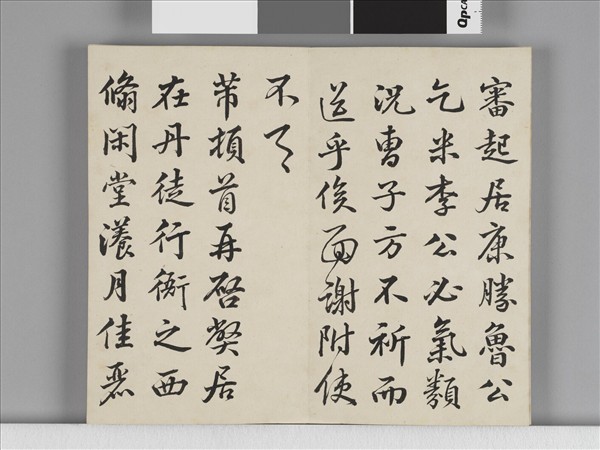 審起居康勝魯公
乞米李公必氣類
況曹子方不祈而
送乎俟面謝附使
不一
芾頓首再啓弊居
在丹徒行衙之西
翛閑堂漾月佳麗
QPCA